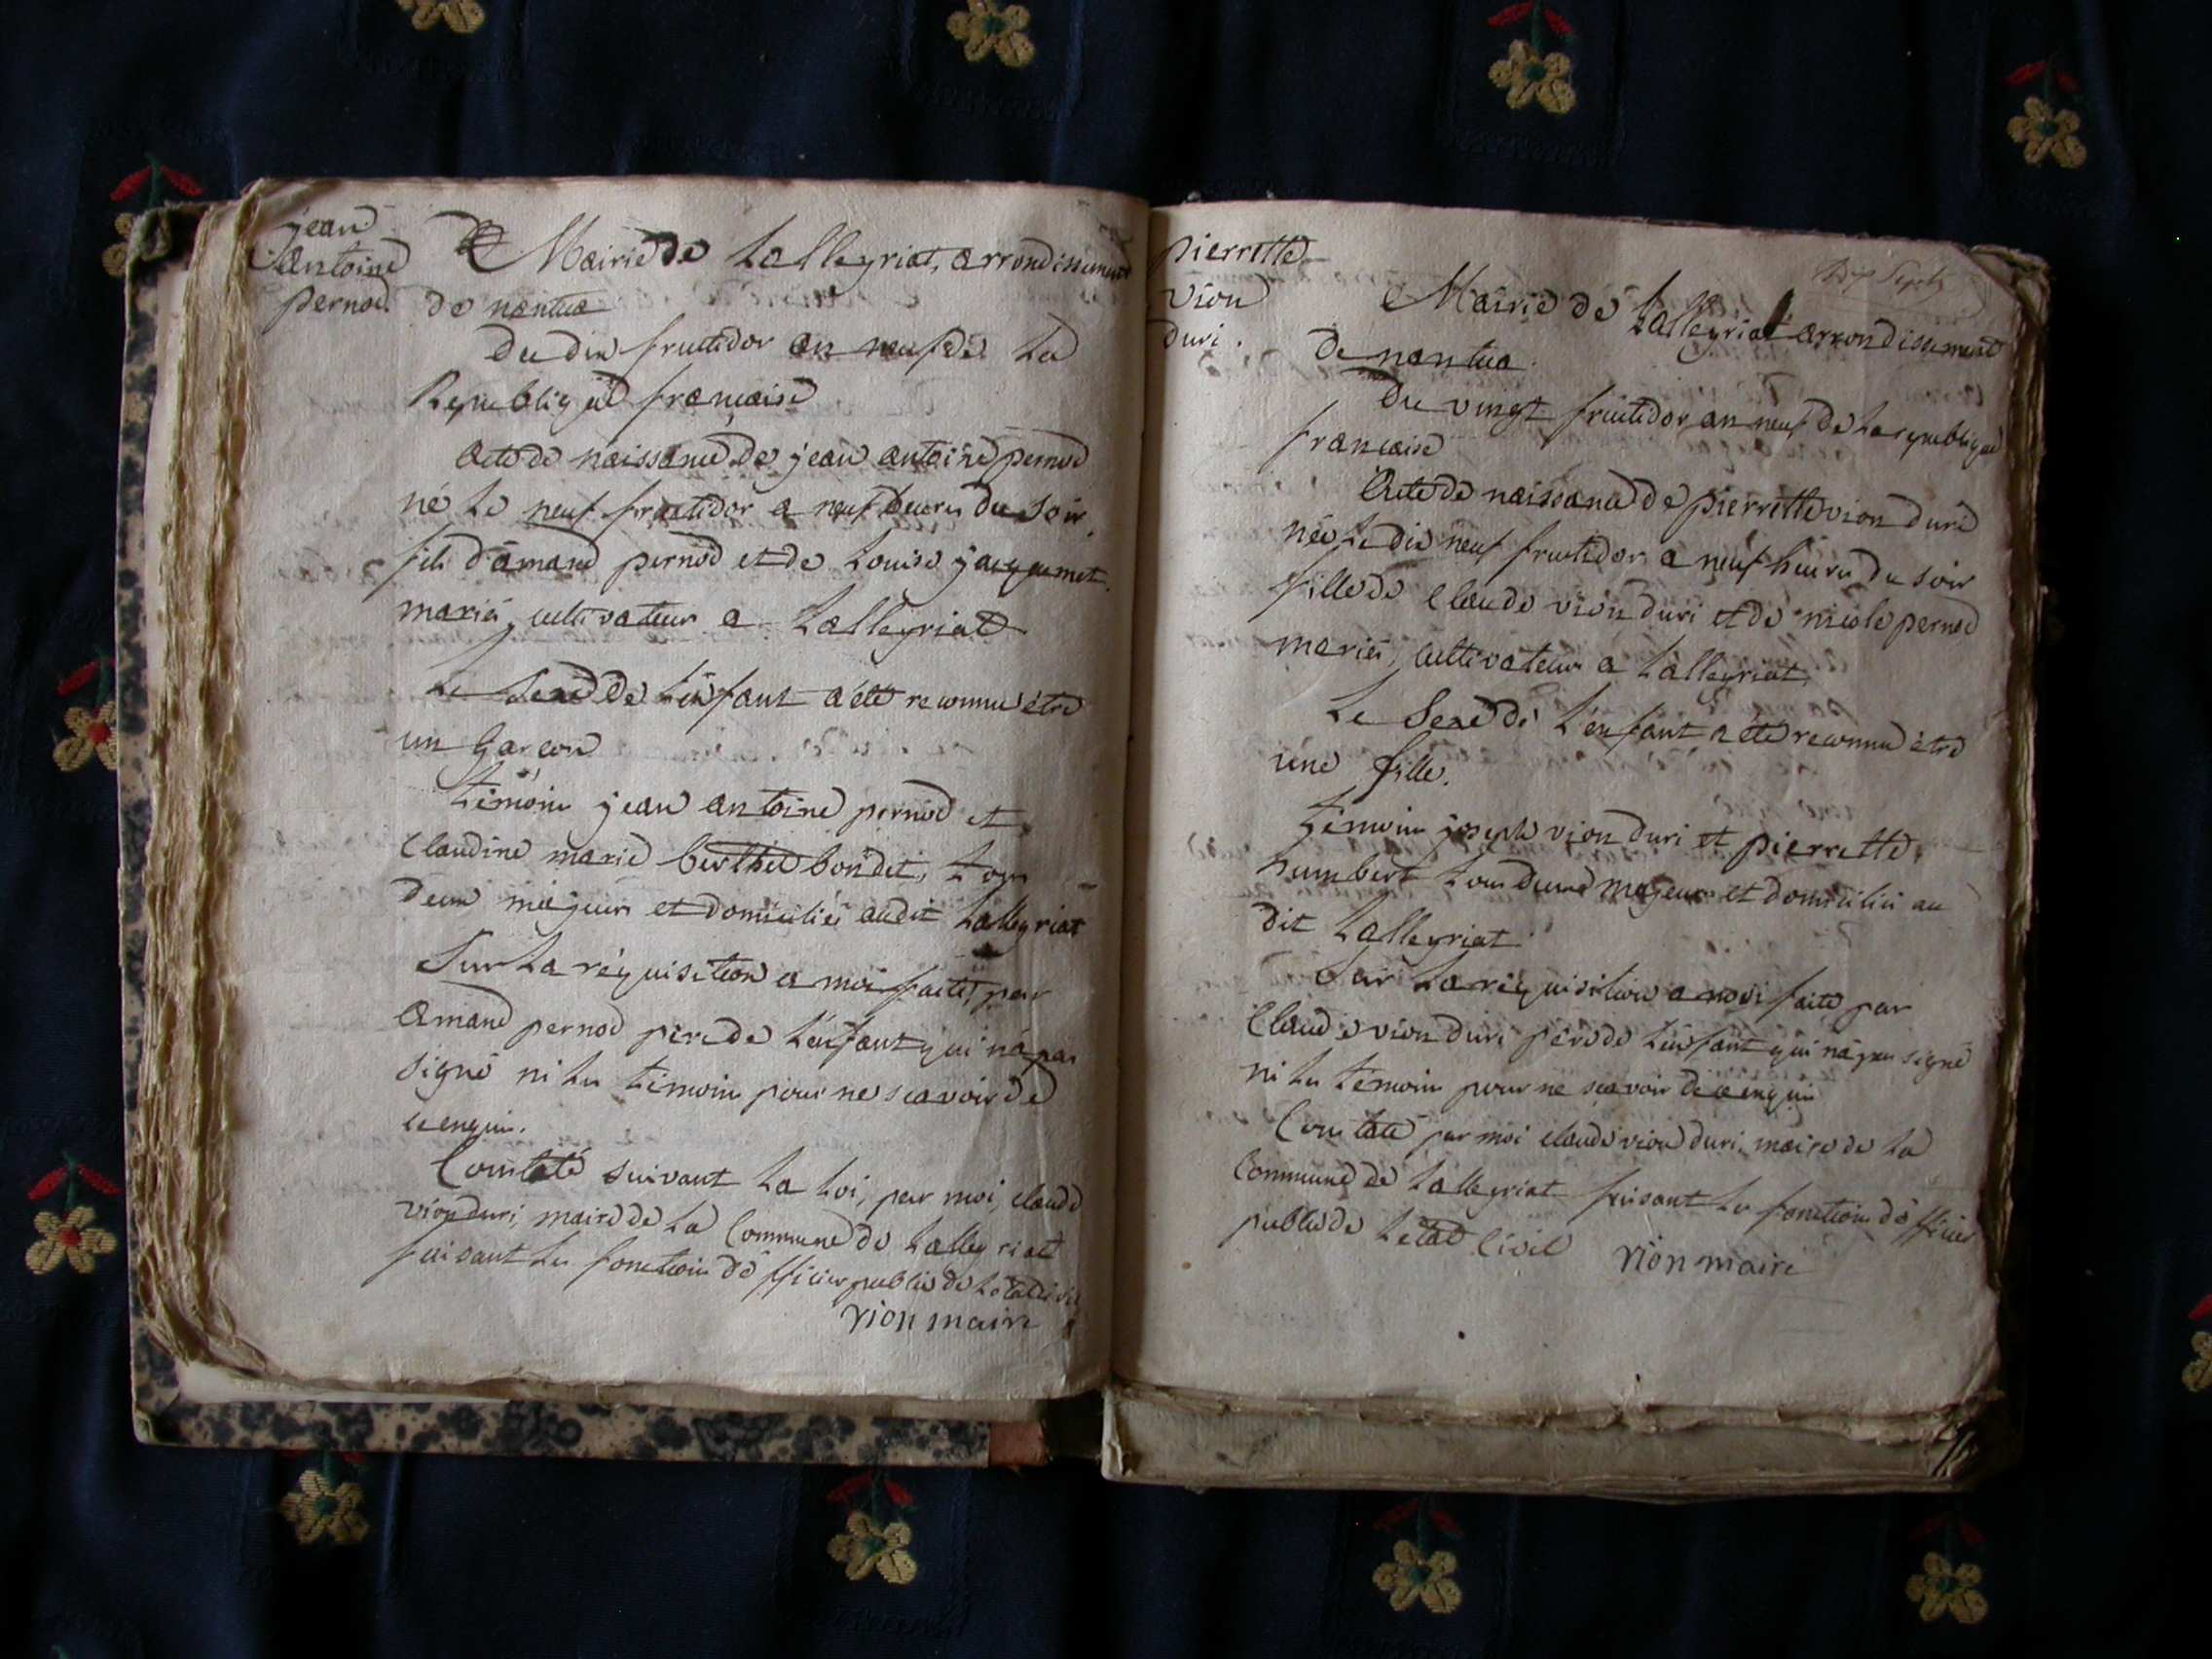 jean
Antoine
pernod.
Mairie de Lalleyriat, arrondissement
de nantua
du dix fructidor an neuf de La
Republique francaise
Acte de naissance de jean antoine pernod
né Le neuf fructidor a neuf heures du soir
fils d'amand pernod et de Louise jacquemet
mariés, cultivateur a Lalleyriat
Le Sexe de L'enfant a été reconnu être
un Garcon
témoins jean antoine pernod et
Claudine marie berthet bondet, tous
deux majeurs et domiciliés audit Lalleyriat
Sur La réquisition a moi faite par
amand pernod pere de L'enfant qui n'a pas
signé ni Les témoins pour ne scavoir de
ce enquis.
Constaté suivant La Loi, par moi, claude
vion duri, maire de La Commune de Lalleyriat
faisant Les fonctions d'officier public de L'état civil
vion maire
pierrette
vion
duri.
dix Sept
Mairie de Lalleyriat arrondissement
de nantua.
Du vingt fructidor an neuf de La republique
francaise
Acte de naissance de pierrette vion duri
née Le dix neuf fructidor a neuf heures du soir
fille de Claude vion duri et de nicole pernod
mariés, cultivateurs a Lalleyriat.
Le Sexe de L'enfant a été reconnu être
une fille.
témoins joseph vion duri et pierrette
humbert tous deux majeurs et domiciliés au
dit Lalleyriat
Sur La réquisition a moi faite par
Claude vion duri père de L'enfant qui n'a pas signé
ni Les témoins pour ne scavoir de ce enquis
Constaté par moi claude vion duri, maire de La
Commune de Lalleyriat faisant Les fonctions d'officier
public de L'état Civil
vion maire